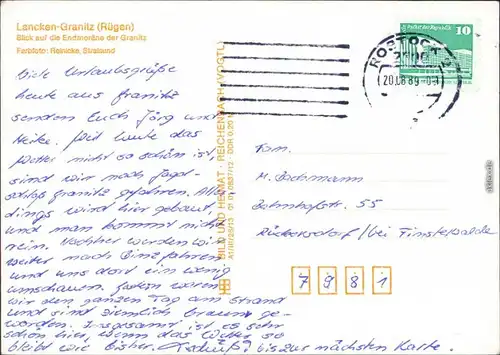 Lancken-Granitz (Rügen)
Blick auf die Endmoräne der Granitz
Farbfoto: Reinicke, Stralsund
Viele Urlaubsgrüße
heute aus Granitz
senden Euch Jörg und
Heike. Weil heute das
Wetter nicht so schön ist,
sind wir nach Jagd-
schloß Granitz gefahren. Aller-
dings wird hier gebaut,
und man kommt nicht
rein. Nachher werden wir
weiter nach Binz fahren
und uns dort ein wenig
umschauen. Gestern waren
wir den ganzen Tag am Strand
und sind ziemlich braun ge-
worden. Insgesamt ist es sehr
schön hier, wenn das Wetter so
bleibt wie bisher. Tschüß bis zur nächsten Karte.
BILD UND HEIMAT · REICHENBACH (VOGTL)
A1/III/26/13 01 01 0837/12 · DDR 0,20 M
ROSTOCK 2
20.08.89
10
Fam.
M. Bachmann
Bahnhofstr. 55
Rückersdorf/bei Finsterwalde
7981